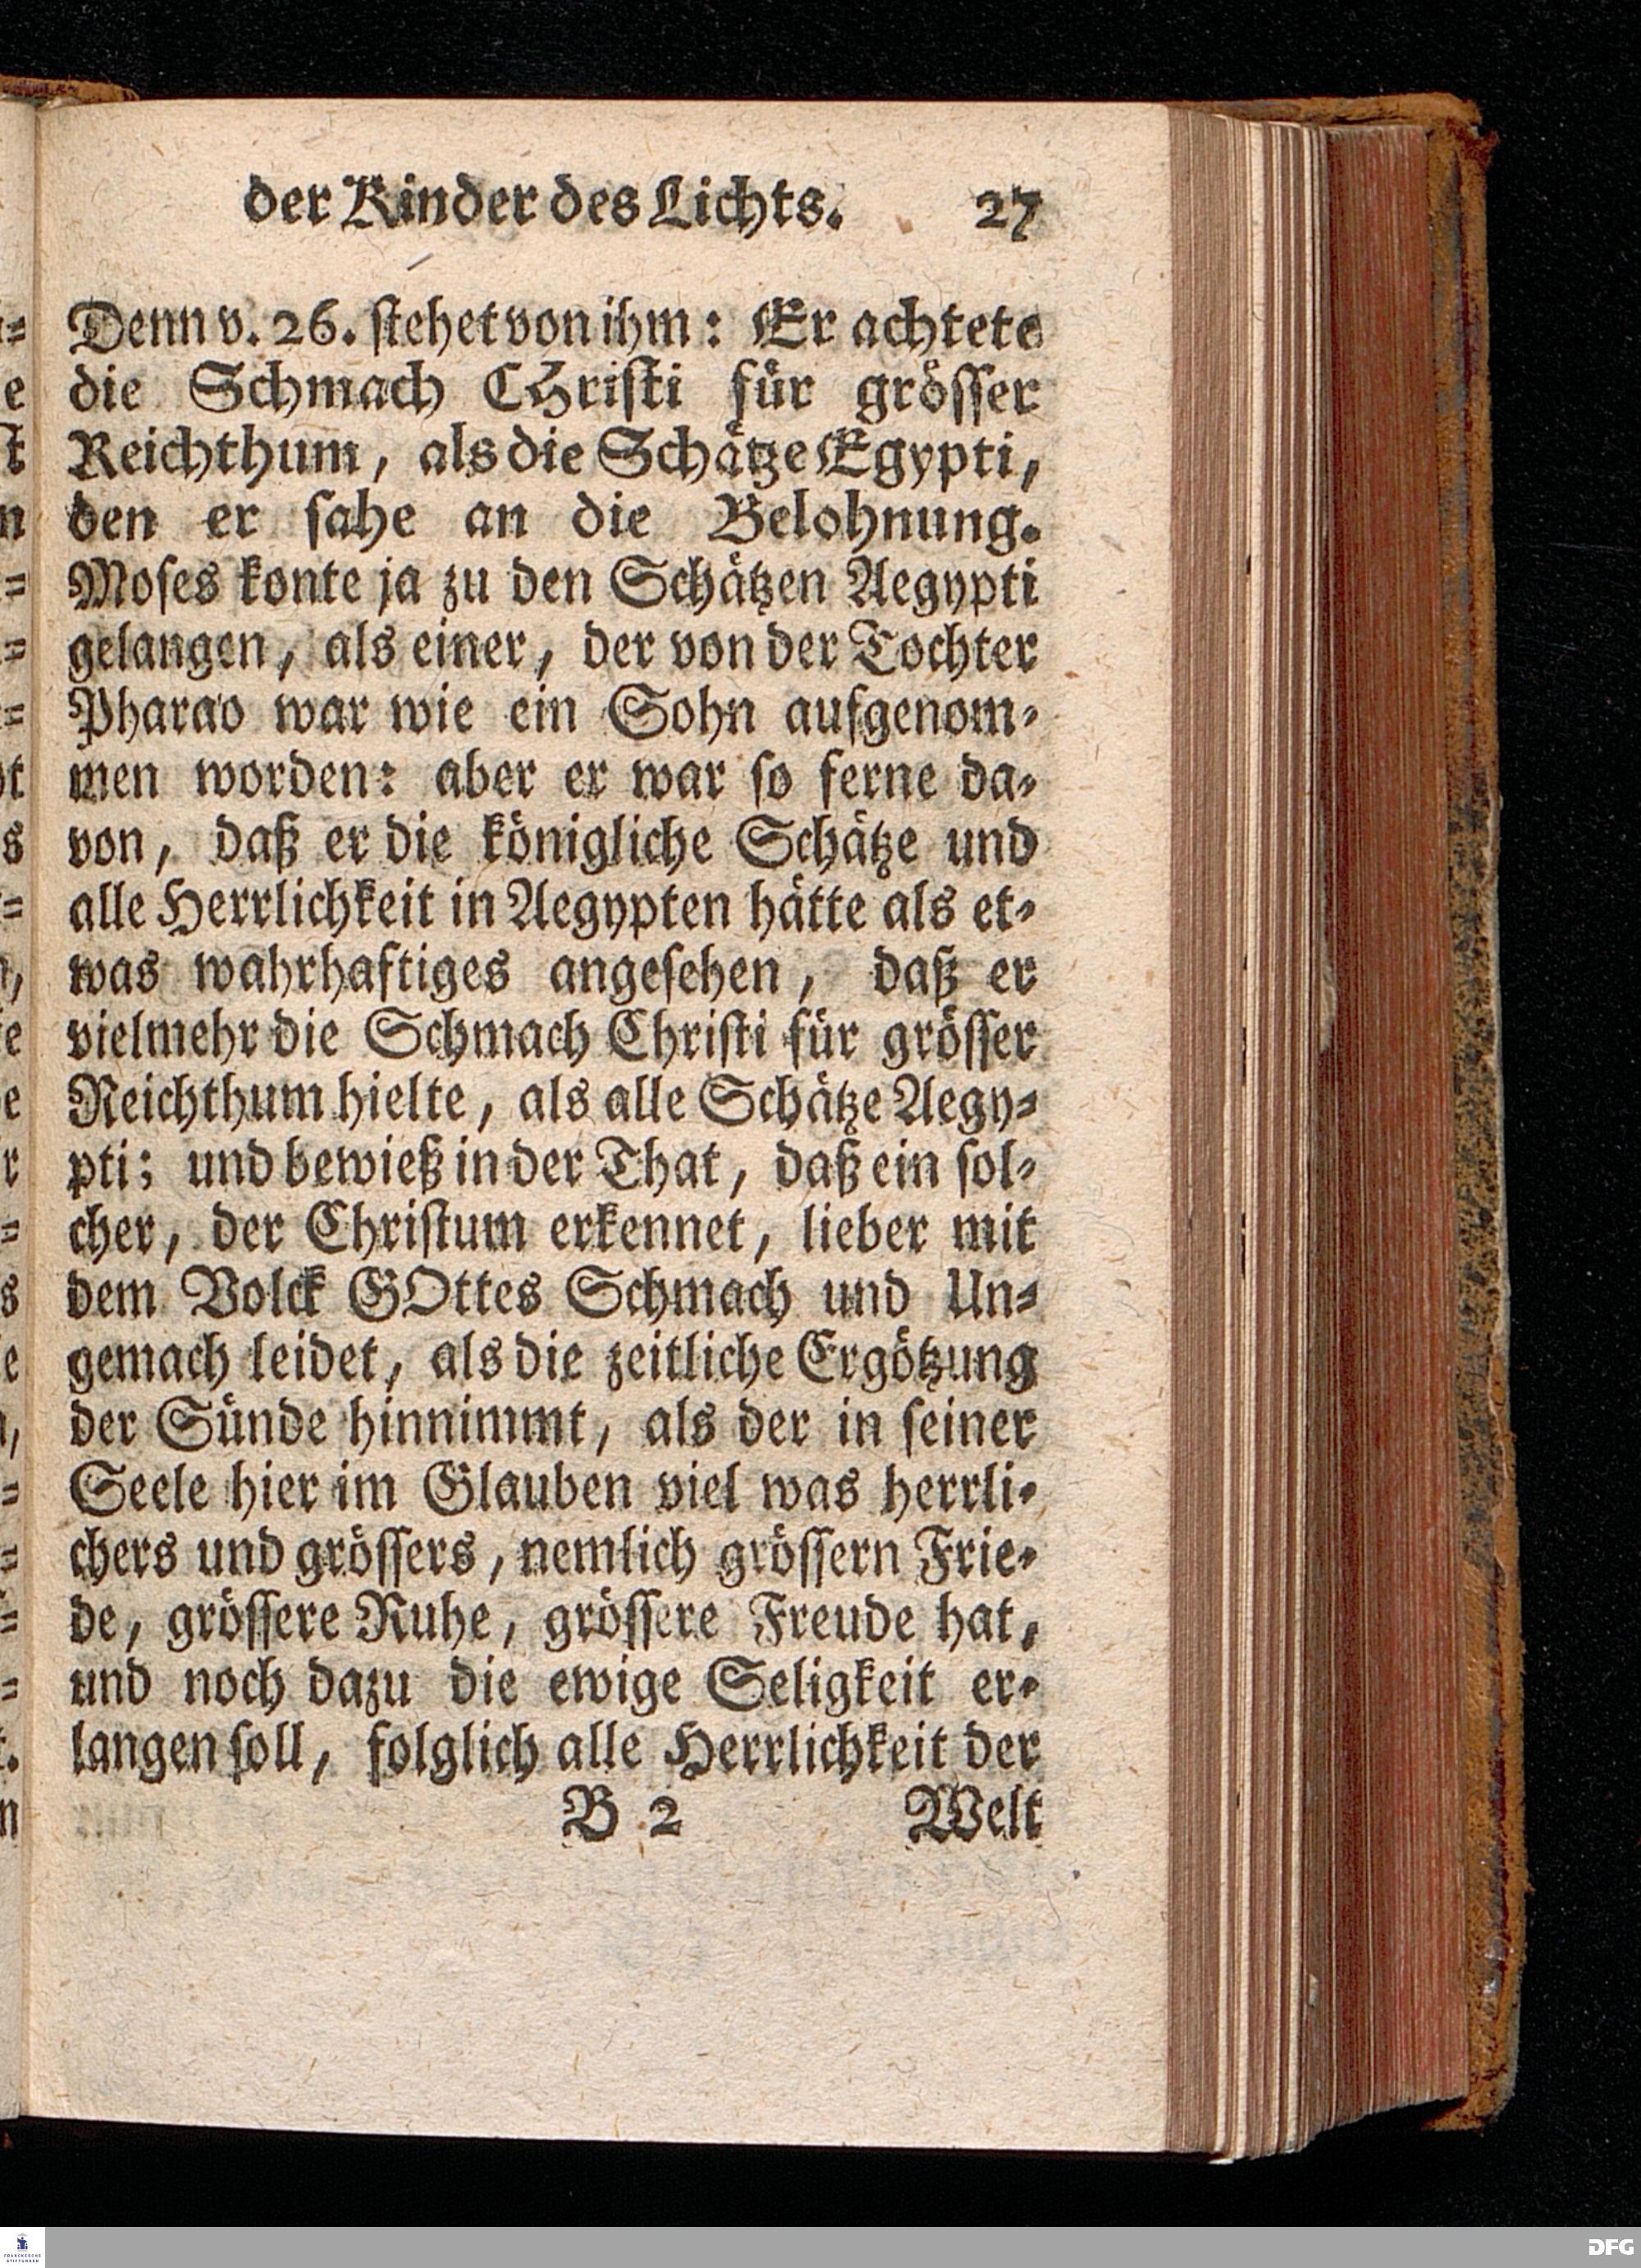 der Kinder des Lichts. 27
Denn v. 26. ſtehet von ihm: Er achtete
die Schmach CHriſti für gröſſer
Reichthum, als die Schätze Egypti,
den er ſahe an die Belohnung.
Moſes konte ja zu den Schätzen Aegypti
gelangen, als einer, der von der Tochter
Pharao war wie ein Sohn aufgenom-
men worden: aber er war ſo ferne da-
von, daß er die königliche Schätze und
alle Herrlichkeit in Aegypten hätte als et-
was wahrhaftiges angeſehen, daß er
vielmehr die Schmach Chriſti für gröſſer
Reichthum hielte, als alle Schätze Aegy-
pti; und bewieß in der That, daß ein ſol-
cher, der Chriſtum erkennet, lieber mit
dem Volck GOttes Schmach und Un-
gemach leidet, als die zeitliche Ergötzung
der Sünde hinnimmt, als der in ſeiner
Seele hier im Glauben viel was herrli-
chers und gröſſers, nemlich gröſſern Frie-
de, gröſſere Ruhe, gröſſere Freude hat,
und noch dazu die ewige Seligkeit er-
langen ſoll, folglich alle Herrlichkeit der
B 2 Welt
FRANCKESCHE STIFTUNGEN
DFG